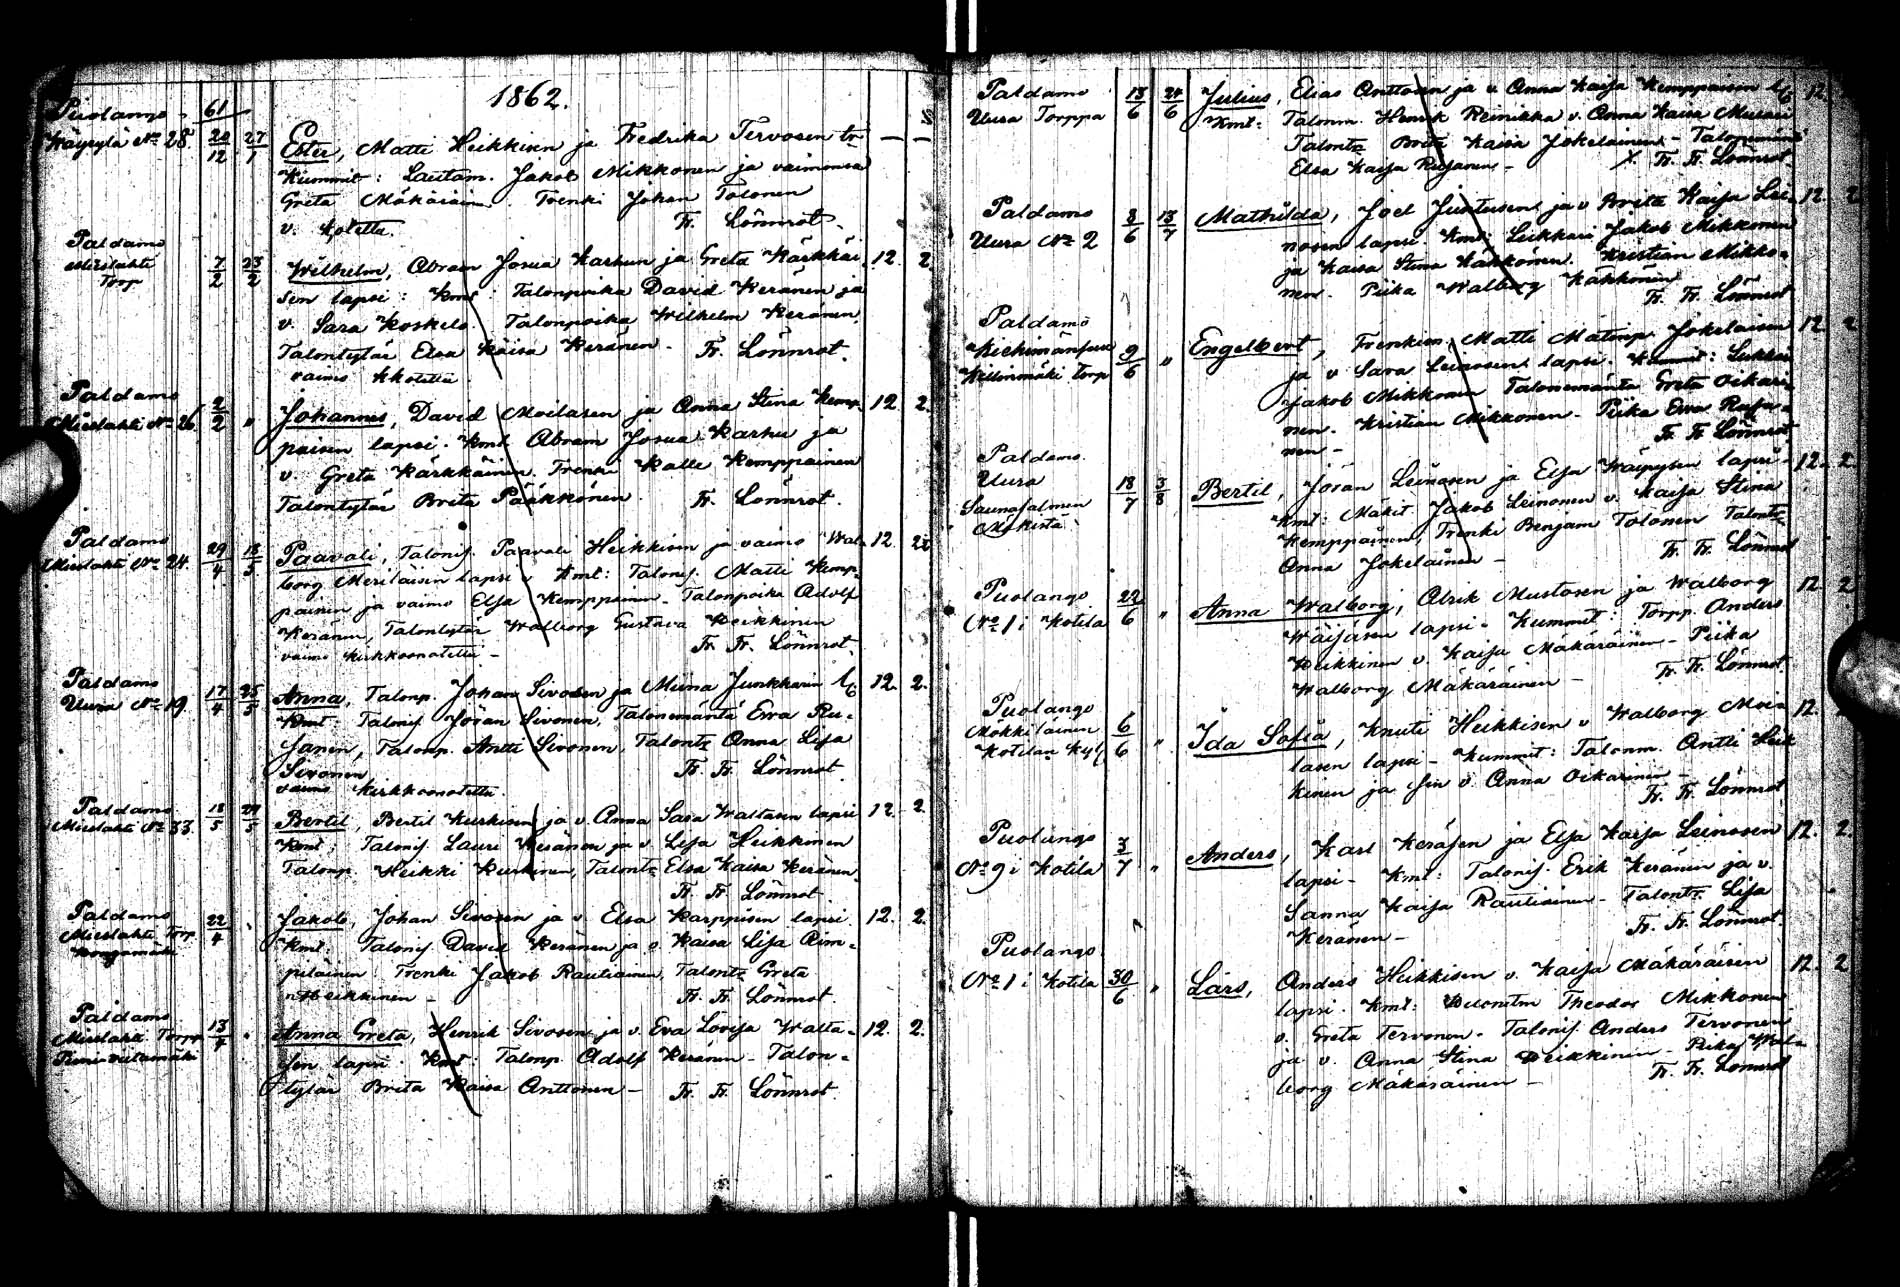 1862.
Puolango - 61
Käyrylä No 28. 20/12 27/1 Ester, Matti Heikkisen ja Fredrika Tervosen tr — —
Kummit: Lautam. Jakob Mikkonen ja vaimonsa
Greta Mäkäräinen. Trenki Johan Tolonen
v. kotettu. Fr. Lönnrot.
Paldamo
Mieslahti
Torp 7/2 23/2 Wilhelm, Abram Josua Karhun ja Greta Kärkkäi- 12. 2.
sen lapsi: Kmt: Talonpoika David Keränen ja
v. Sara Koskelo. Talonpoika Wilhelm Keränen.
Talontytär Elsa Kaisa Keränen. Fr. Lönnrot.
vaimo kkotettu.
Paldamo
Mieslahti No 26. 2/2 " Johannes, David Moilasen ja Anna Stina Kemp- 12. 2.
paisen lapsi. Kmt. Abram Josua Karhu ja
v. Greta Kärkkäinen. Trenki Kalle Kemppainen
Talontytär Brita Pääkkönen. Fr. Lönnrot.
Paldamo
Mieslahti No 24. 29/4 18/5 Paavali, Talonij. Paavali Heikkisen ja vaimo Wal- 12. 2.
borg Meriläisen lapsi. Kmt: Talonij. Matti Kemp-
painen ja vaimo Elsa Kemppainen. Talonpoika Adolf
Keränen, Talontytär Walborg Gustava Heikkinen
vaimo kirkkoonotettu - Fr. Fr. Lönnrot.
Paldamo
Uura No 19. 17/4 25/5 Anna, Talonp. Johan Sivosen ja Miina Junkkarin l. 12. 2.
Kmt: Talonij. Jöran Sivonen, Talonemäntä Eva Ru-
sanen, Talonp. Antti Sivonen, Talontr Anna Lisa
Sivonen Fr. Fr. Lönnrot.
vaimo kirkkoonotettu.
Paldamo
Mieslahti No 33. 18/5 29/5 Bertil, Bertil Kurkisen ja v. Anna Sara Waltasen lapsi 12. 2.
Kmt; Talonij. Lauri Keränen ja v. Lisa Heikkinen
Talonp. Heikki Kurkinen, Talontr Elsa Kaisa Keränen.
Fr. Fr. Lönnrot.
Paldamo
Mieslahti Torp 22/4 " Jakob, Johan Sivosen ja v. Elsa Karppisen lapsi. 12. 2.
Kmt: Talonij. David Keränen ja v. Kaisa Lisa Rim-
piläinen. Trenki Jakob Rautiainen, Talontr Greta
Heikkinen - Fr. Fr. Lönnrot.
Paldamo
Mieslahti Torpp 13/4 " Anna Greta, Henrik Sivosen ja v. Eva Lovisa Walta- 12. 2.
sen lapsi. Kmt: Talonp. Adolf Keränen - Talon-
tytär Brita Kaisa Anttonen - Fr. Fr. Lönnrot.
Paldamo
Uura Torppa 13/6 24/6 Julius, Elias Anttosen ja v. Anna Kaisa Kemppaisen l. 12.
Kmt: Talonm. Henrik Reinikka v. Anna Kaisa
Talontr Brita Kaisa Jokelainen -
Elsa Kaisa Rusanen - Fr. Fr. Lönnrot.
Paldamo
Uura No 2 3/6 13/7 Mathilda, Joel Juntusen ja v. Brita Kaisa Lei- 12. 2.
nosen lapsi. Kmt: Leikkari Jakob Mikkonen
ja Kaisa Stina Käkkönen. Kristian Mikko-
nen. Piika Walborg Käkkönen
Fr. Fr. Lönnrot
Paldamo
9/6 " Engelbert, Trenkim. Matti Matinp. Jokelaisen 12. 2.
ja v. Sara Leinosen lapsi. Kummit: Leikkari
Jakob Mikkonen Talonemäntä Greta Oikari-
nen. Kristian Mikkonen - Piika Eva Rusa-
nen - Fr. Fr. Lönnrot.
Paldamo.
Uura
Saunasalmen
Mökistä 18/7 3/8 Bertil, Jöran Leinosen ja Elsa Käyrysen lapsi - 12. 2.
Kmt: Mäkit. Jakob Leinonen v. Kaisa Stina
Kemppainen, Trenki Benjam Tolonen Talontr
Anna Jokelainen - Fr. Fr. Lönnrot
Puolango
No 1 i Kotila 22/6 " Anna Walborg, Olrik Mustosen ja Walborg 12. 2
Wäisäsen lapsi. Kummit: Torpp. Anders
Heikkinen v. Kaisa Mäkäräinen - Piika
Walborg Mäkäräinen - Fr. Fr. Lönnrot.
Puolango
Mökkiläinen
Kotilan kyl. 6/6 " Ida Sofia, Knuti Heikkisen v. Walborg Moi- 12.
lasen lapsi - Kummit: Talonm. Antti Heik
kinen ja sin v. Anna Oikarinen -
Fr. Fr. Lönnrot.
Puolango
No 9 i Kotila 3/7 " Anders, Karl Keräsen ja Elsa Kaisa Leinosen 12. 2.
lapsi - Kmt: Talonij. Erik Keränen ja v.
Sanna Kaisa Rautiainen - Talontr. Lisa
Keränen - Fr. Fr. Lönnrot.
Puolango
No 1 i Kotila 30/6 " Lars, Anders Heikkisen v. Kaisa Mäkäräisen 12. 2
lapsi. Kmt: Theodor Mikkonen
v. Greta Tervonen. Talonij. Anders Tervonen
ja v. Anna Stina Heikkinen - Piika Wal-
borg Mäkäräinen - Fr. Fr. Lönnrot